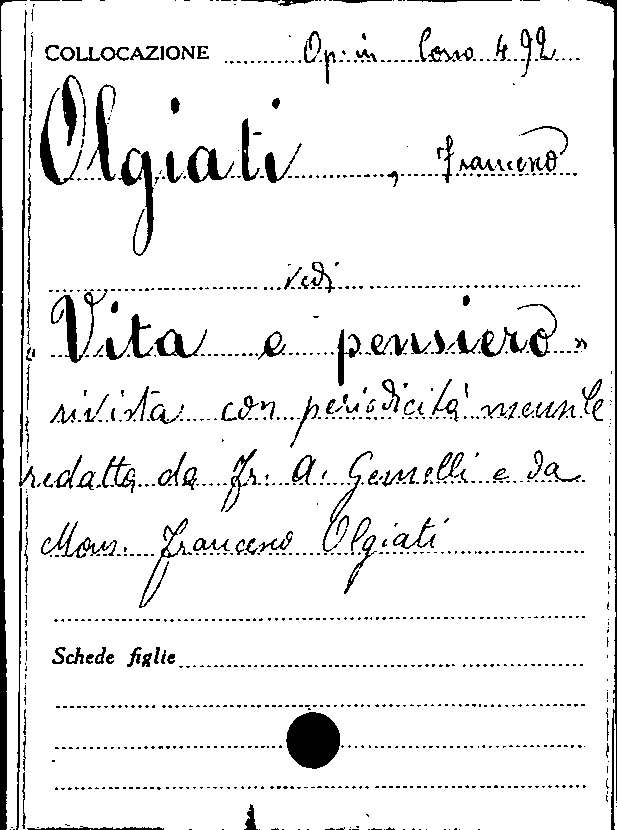 COLLOCAZIONE Op. in Corso 492
Olgiati, Francesco
vedi
"Vita e pensiero"
rivista con periodicità mensile
redatta da Fr. A. Gemelli e da
Mons. Francesco Olgiati
Schede figlie